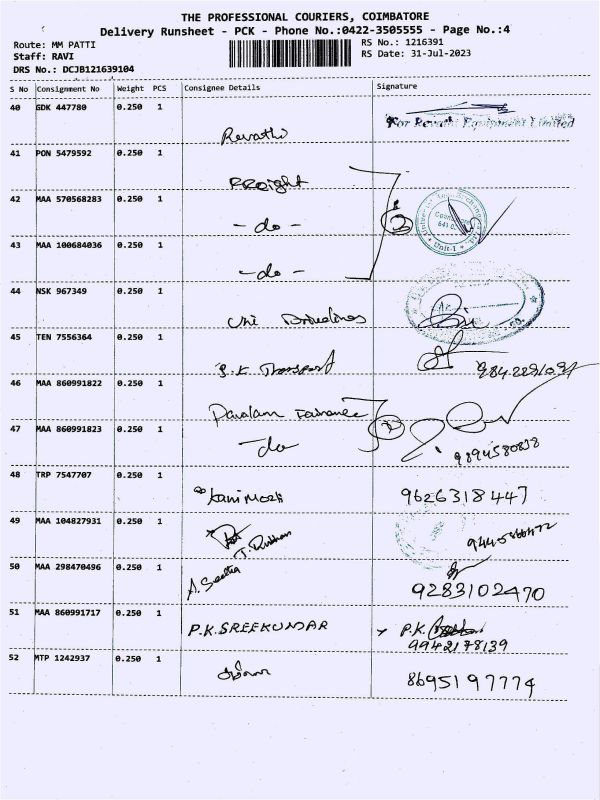 THE PROFESSIONAL COURIERS, COIMBATORE
Delivery Runsheet - PCK - Phone No.:0422-3505555 - Page No.:4
Route: MM PATTI
RS No.: 1216391
Staff: RAVI
RS Date: 31-Jul-2023
DRS No.: DCJB121639104
S No Consignment No Weight PCS Consignee Details Signature
40 GDK 447780 0.250 1
For Revathi Equipment Limited
Revathi
41 PON 5479592 0.250 1
42 MAA 570568283 0.250 1
- do -
43 MAA 100684036 0.250 1
- do -
44 NSK 967349 0.250 1
Uni
45 TEN 7556364 0.250 1
S.K Transport
46 MAA 860991822 0.250 1
47 MAA 860991823 0.250 1
- do
9894580838
48 TRP 7547707 0.250 1
Kani Mozhi 9626318447
49 MAA 104827931 0.250 1
50 MAA 298470496 0.250 1
A. Seetha 9283102470
51 MAA 860991717 0.250 1
P.K.SREEKUMAR P.K.
9942178139
52 MTP 1242937 0.250 1
8695197774